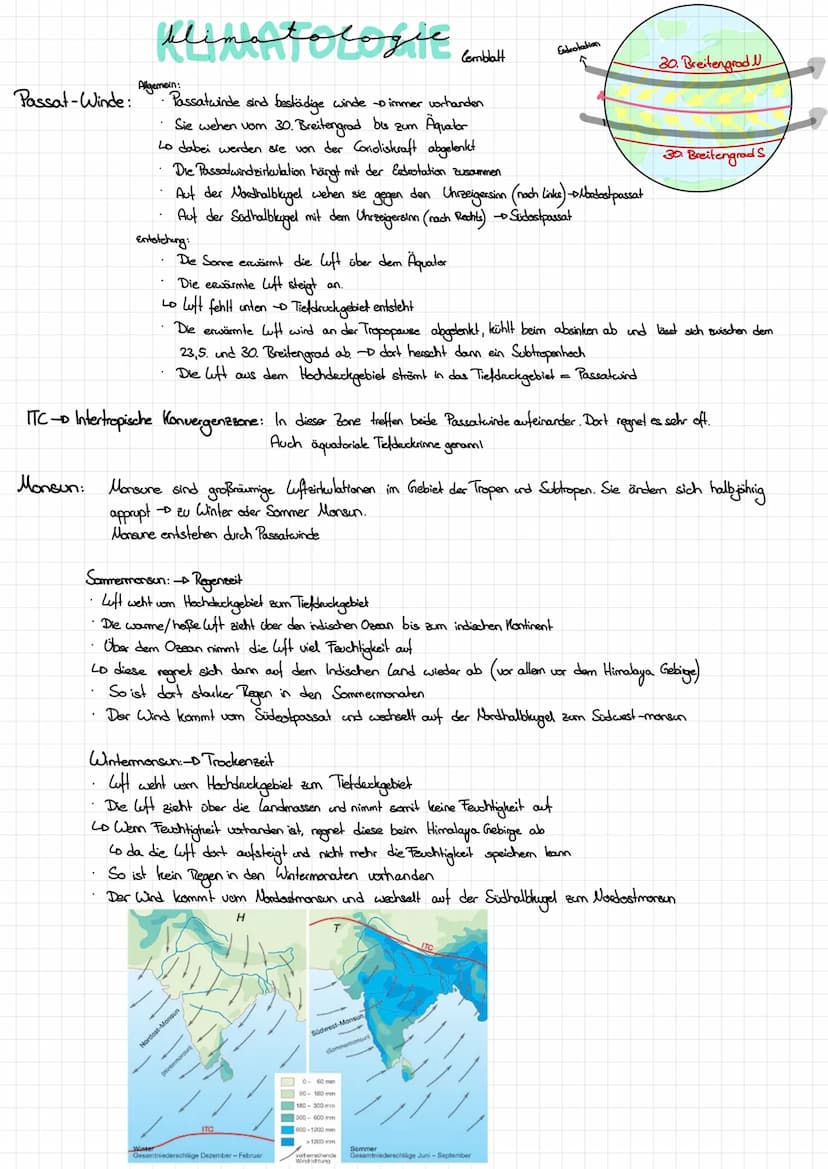 KLIMATOLOGIE
klimatologie
Lernblatt
Erdrotation
30. Breitengrad N
30. Breitengrad S
Passat-Winde:
Allgemein:
· Passatwinde sind beständige winde → immer vorhanden
· Sie wehen vom 30. Breitengrad bis zum Äquator
↳ dabei werden sie von der Corioliskraft abgelenkt
· Die Passatwindzirkulation hängt mit der Erdrotation zusammen
· Auf der Nordhalbkugel wehen sie gegen den Uhrzeigersinn (nach Links) → Nordostpassat
· Auf der Südhalbkugel mit dem Uhrzeigersinn (nach Rechts) → Südostpassat
Entstehung:
· Die Sonne erwärmt die Luft über dem Äquator
· Die erwärmte Luft steigt an.
↳ Luft fehlt unten → Tiefdruckgebiet entsteht
· Die erwärmte Luft wird an der Tropopause abgelenkt, kühlt beim absinken ab und lässt sich zwischen dem
23,5. und 30. Breitengrad ab. → dort herscht dann ein Subtropenhoch
· Die Luft aus dem Hochdruckgebiet strömt in das Tiefdruckgebiet = Passatwind
ITC → Intertropische Konvergenzzone: In dieser Zone treffen beide Passatwinde aufeinander. Dort regnet es sehr oft.
Auch äquatoriale Tiefdruckrinne genannt
Monsun: Monsune sind großräumige Luftzirkulationen im Gebiet der Tropen und Subtropen. Sie ändern sich halbjährig
apprupt → zu Winter oder Sommer Monsun.
Monsune entstehen durch Passatwinde
Sommermonsun: → Regenzeit
· Luft weht vom Hochdruckgebiet zum Tiefdruckgebiet
· Die warme/heiße Luft zieht über den indischen Ozean bis zum indischen Kontinent
· Über dem Ozean nimmt die Luft viel Feuchtigkeit auf
↳ diese regnet sich dann auf dem Indischen Land wieder ab (vor allem vor dem Himalaya Gebirge)
· So ist dort starker Regen in den Sommermonaten
· Der Wind kommt vom Südostpassat und wechselt auf der Nordhalbkugel zum Südwest-monsun
Wintermonsun: → Trockenzeit
· Luft weht vom Hochdruckgebiet zum Tiefdruckgebiet
· Die Luft zieht über die Landmassen und nimmt somit keine Feuchtigkeit auf
↳ Wenn Feuchtigkeit vorhanden ist, regnet diese beim Himalaya Gebirge ab
↳ da die Luft dort aufsteigt und nicht mehr die Feuchtigkeit speichern kann
· So ist kein Regen in den Wintermonaten vorhanden
· Der Wind kommt vom Nordostmonsun und wechselt auf der Südhalbkugel zum Nordostmonsun
H
Nordost-Monsun
(Wintermonsun)
ITC
Winter
Gesamtniederschläge Dezember – Februar
T
ITC
Südwest-Monsun
(Sommermonsun)
0 – 60 mm
60 – 180 mm
180 – 300 mm
300 – 600 mm
600 – 1200 mm
> 1200 mm
vorherrschende
Windrichtung
Sommer
Gesamtniederschläge Juni – September